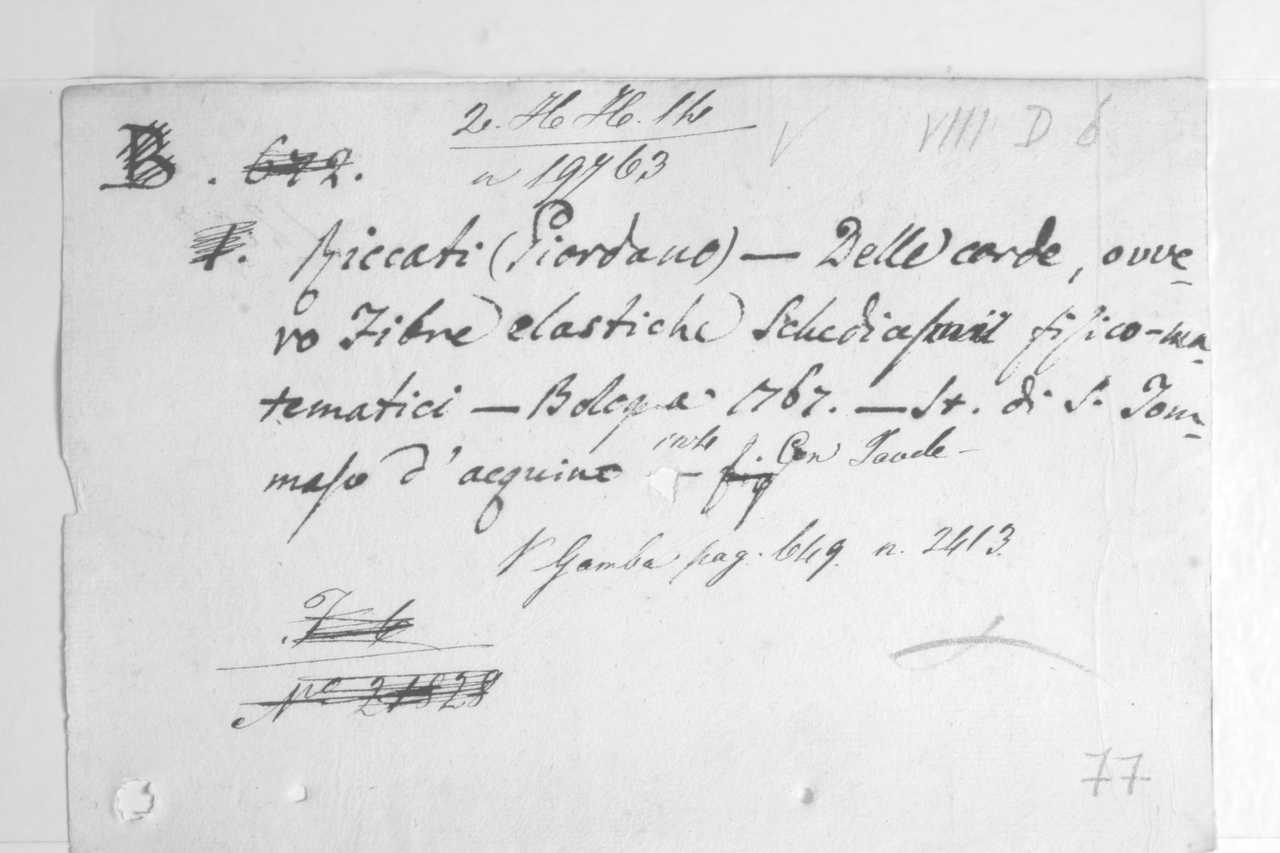 VIII D 6
B. 672.
n 19763
Riccati (Giordano) — Delle corde, ovve-
ro Fibre elastiche Schediasmi fisico-ma-
tematici — Bologna 1767. — St. di S. Tom-
maso d'acquino — fig Con Tavole -
V Gamba pag. 649. n. 2413.
N.º 21828
77